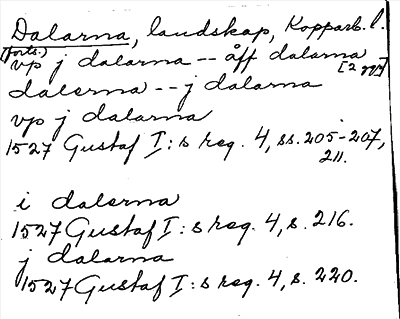 Dalarna, landskap, Kopparb. l.
(forts.)
vp j dalarna -- åff dalarna
[2 ggr]
dalerna -- j dalarna
vp j dalarna
1527 Gustaf I:s reg. 4, ss. 205-207,
211.
i dalerna
1527 Gustaf I:s reg. 4, s. 216.
j dalarna
1527 Gustaf I:s reg. 4, s. 220.